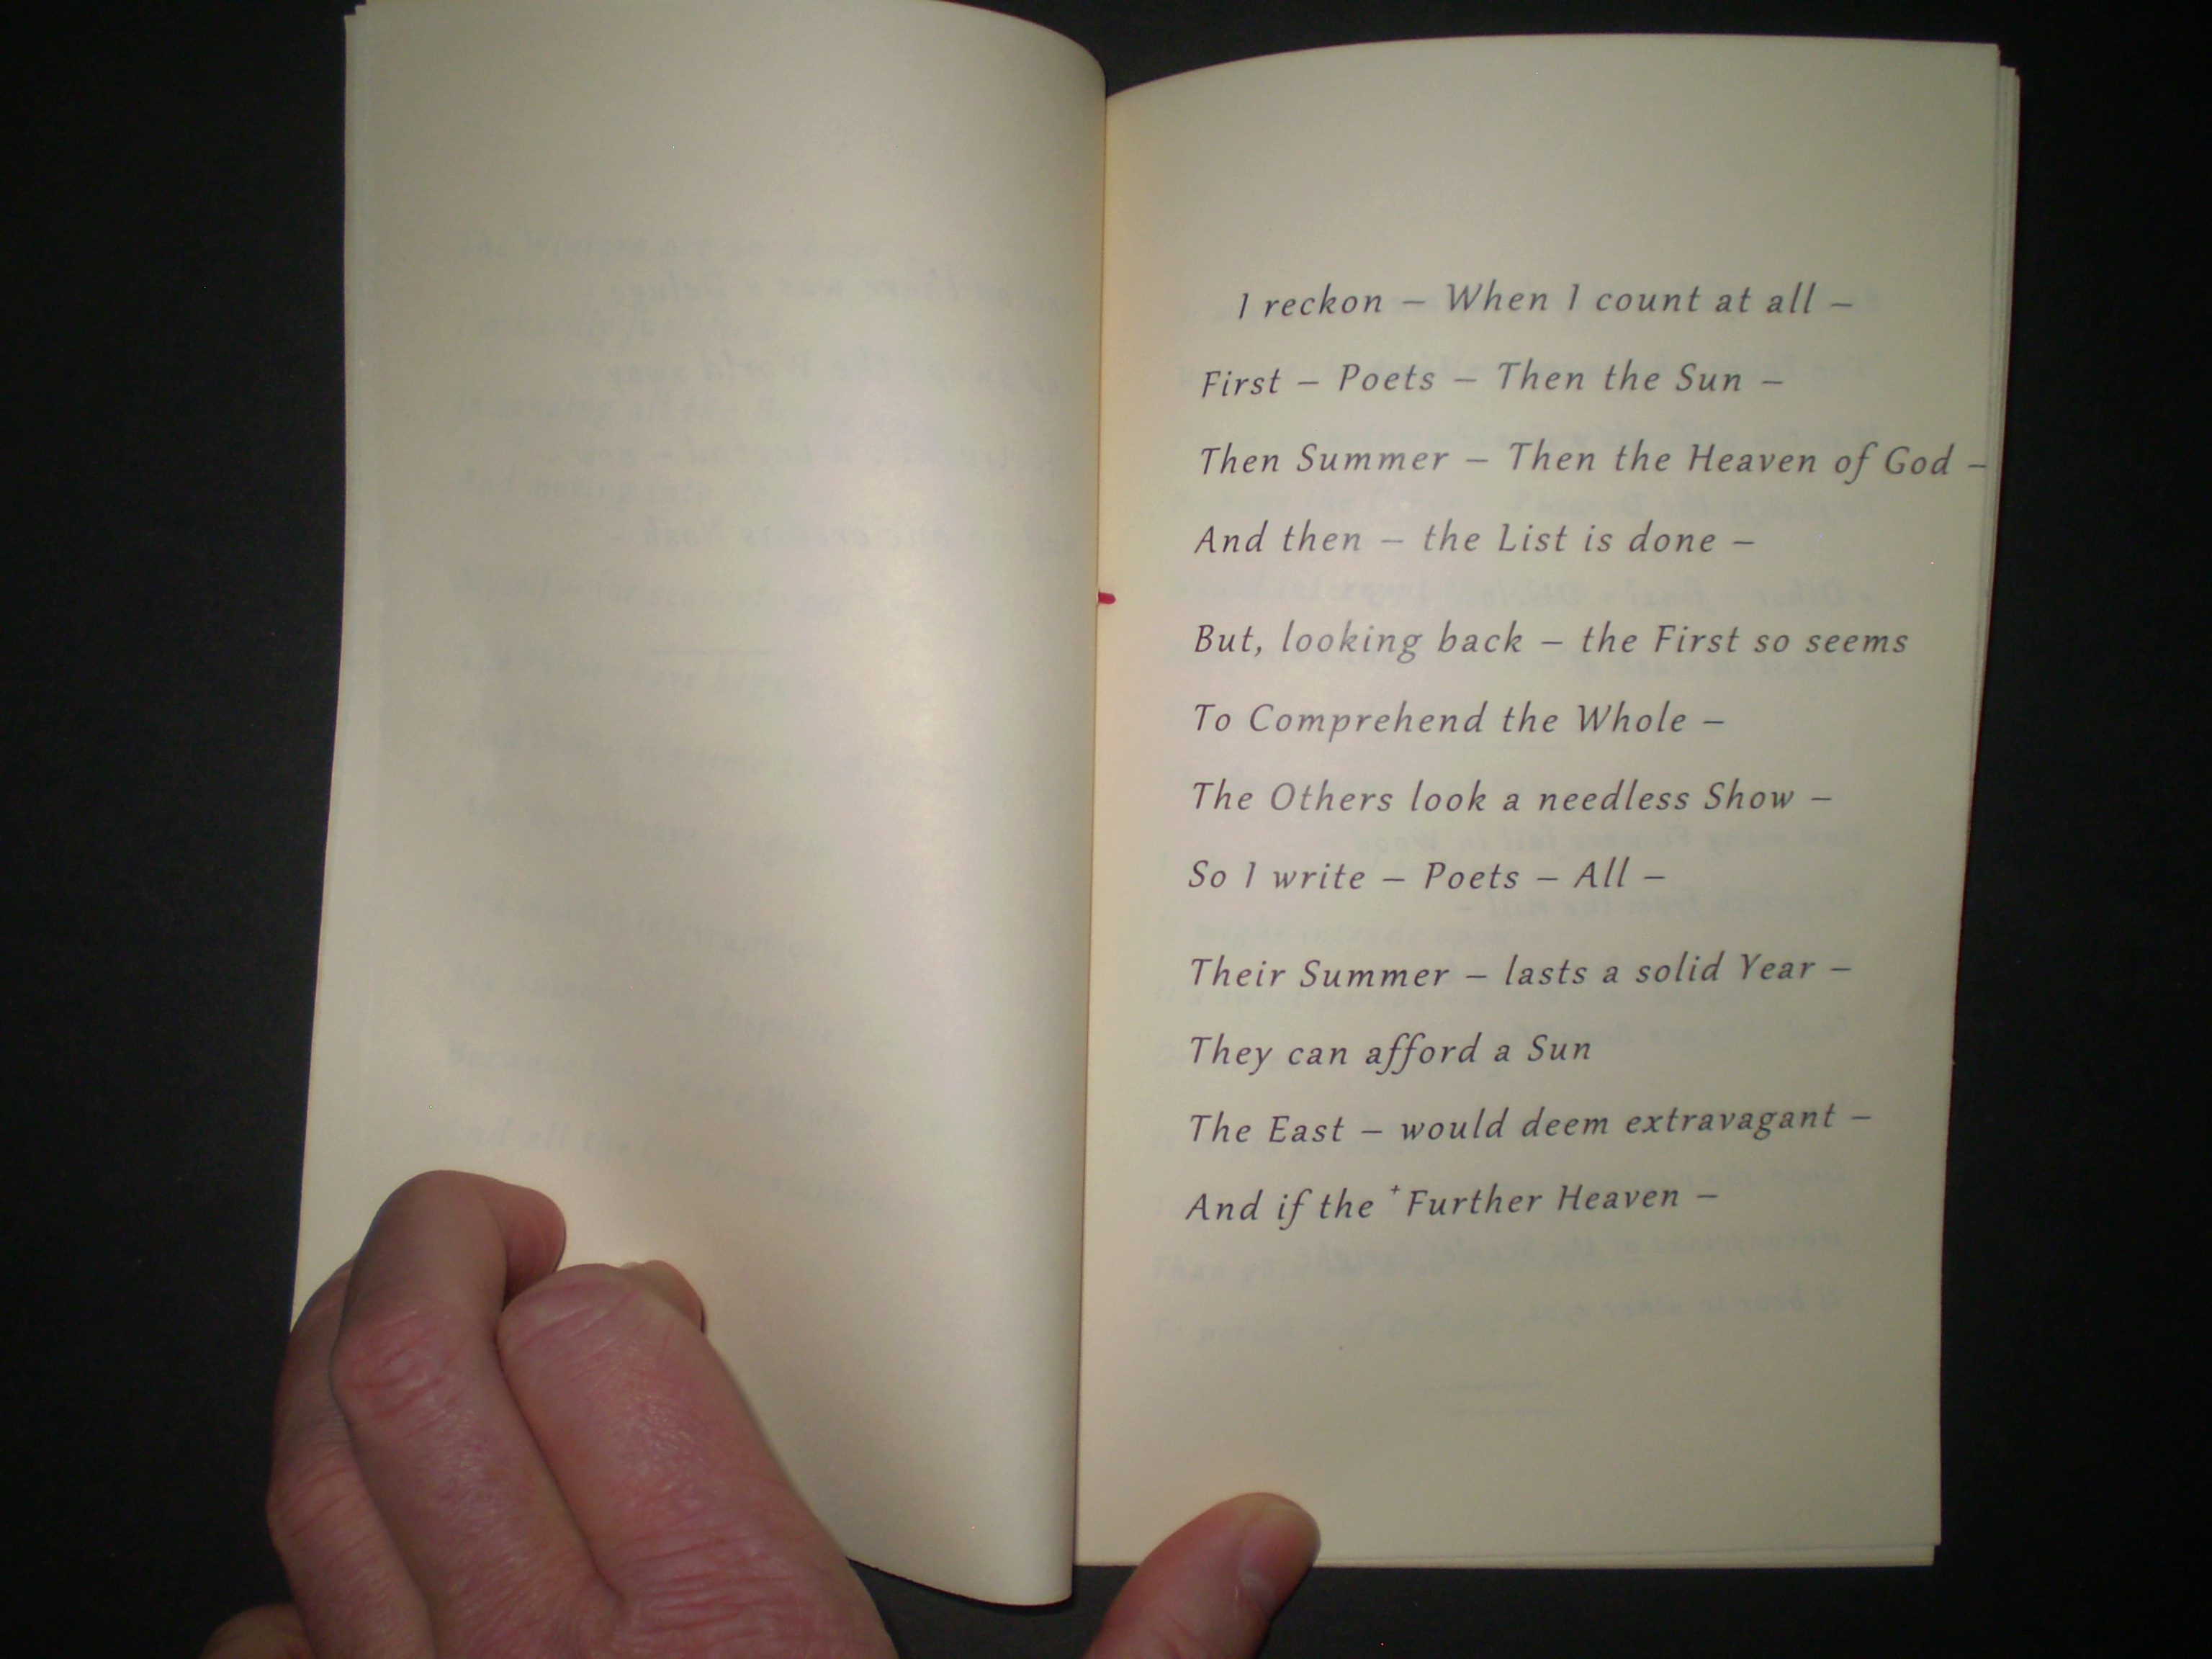 I reckon – When I count at all –
First – Poets – Then the Sun –
Then Summer – Then the Heaven of God –
And then – the List is done –
But, looking back – the First so seems
To Comprehend the Whole –
The Others look a needless Show –
So I write – Poets – All –
Their Summer – lasts a solid Year –
They can afford a Sun
The East – would deem extravagant –
And if the +Further Heaven –